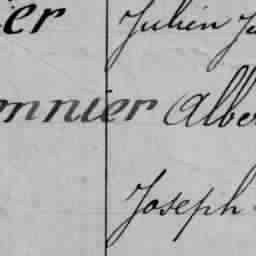 er Julien
nnier Albe
Joseph